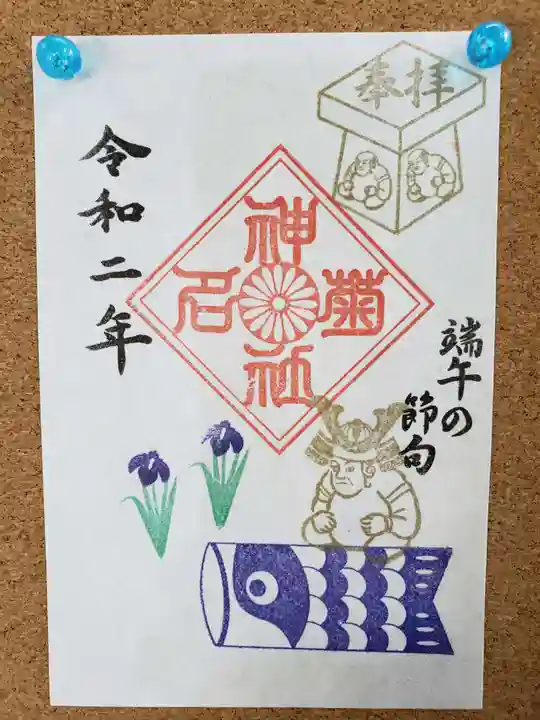 奉拝
端午の
節句
神
菊名
社
令和二年